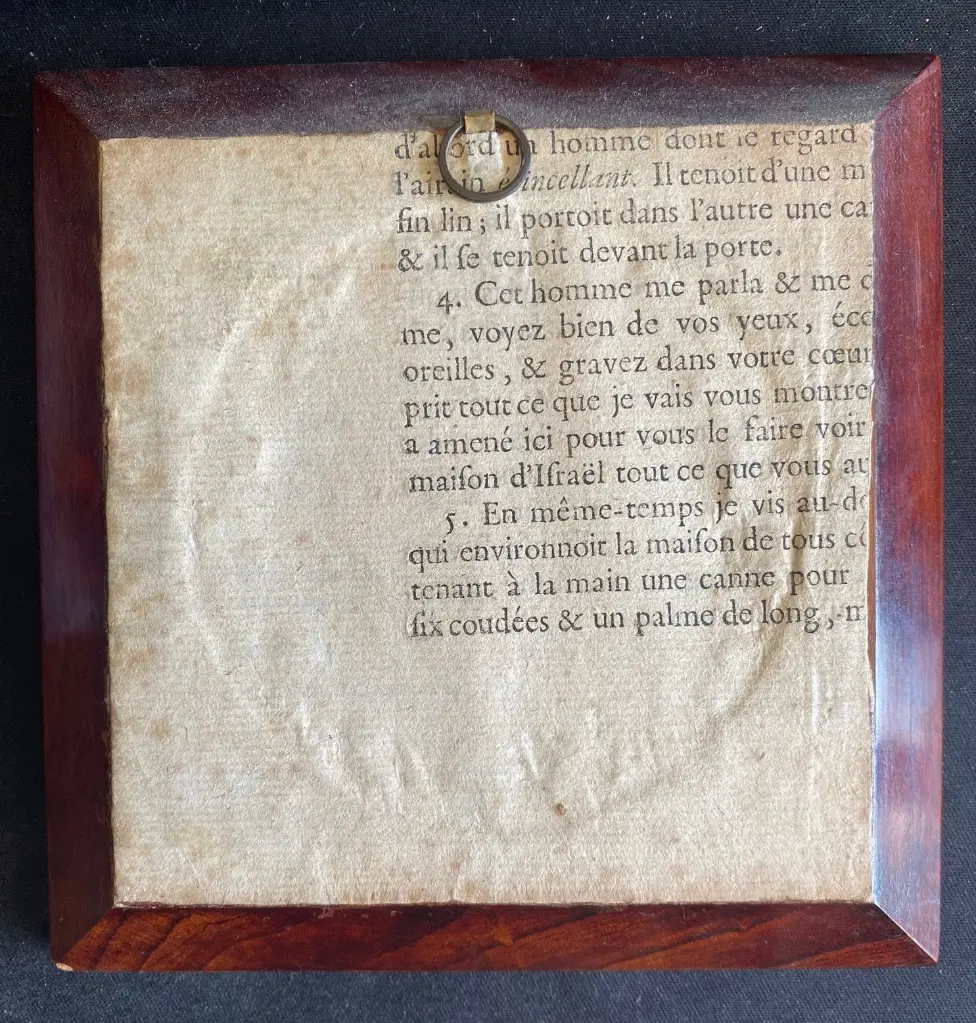 d'abord un homme dont le regard
l'airain étincellant. Il tenoit d'une m
fin lin ; il portoit dans l'autre une ca
& il ſe tenoit devant la porte.
4. Cet homme me parla & me d
me, voyez bien de vos yeux, éco
oreilles, & gravez dans votre cœur
prit tout ce que je vais vous montre
a amené ici pour vous le faire voir
maiſon d'Iſraël tout ce que vous au
5. En même-temps je vis au-de
qui environnoit la maiſon de tous cô
tenant à la main une canne pour
ſix coudées & un palme de long, m